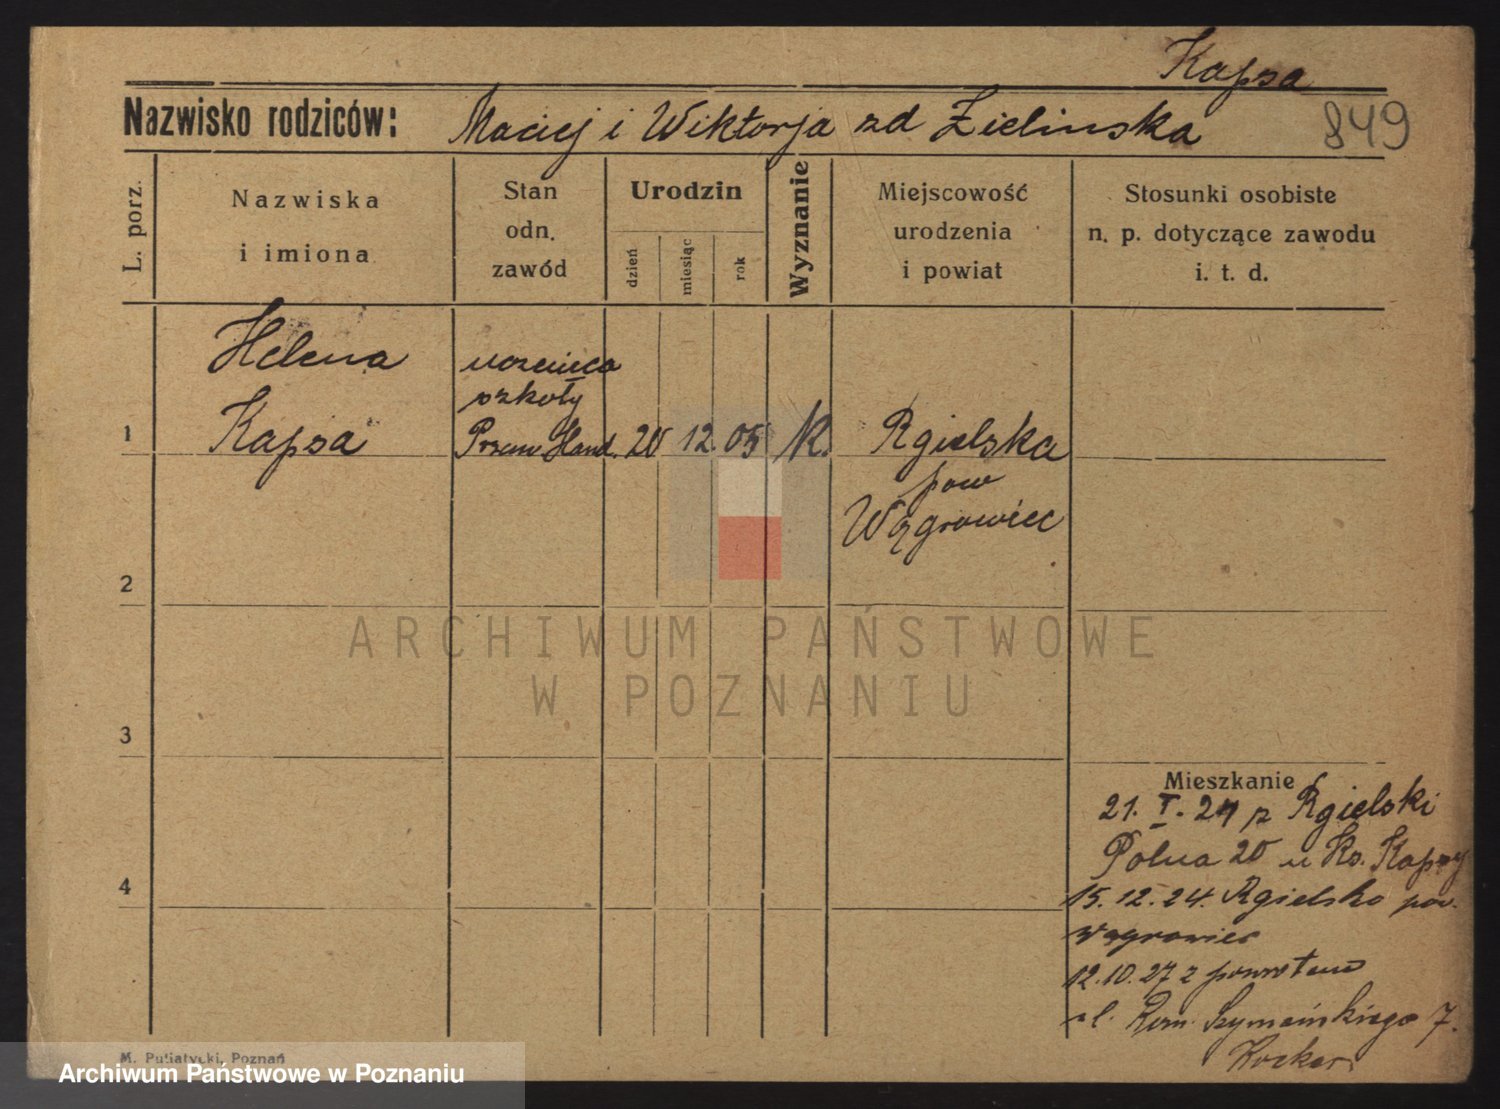 Kapsa
Nazwisko rodziców: Maciej i Wiktorja zd Zielinska 849
L. porz.
Nazwiska
i imiona
Stan
odn.
zawód
Urodzin
dzień
miesiąc
rok
Wyznanie
Miejscowość
urodzenia
i powiat
Stosunki osobiste
n. p. dotyczące zawodu
i. t. d.
Helena
Kapsa
uczenica
szkoły
Przem Hand.
20 12. 05 K.
Rgielska
pow
Wągrowiec
1
2
3
4
Mieszkanie
21. I. 24 z Rgielski
Polna 20 u Ks. Kapsy
15. 12. 24. Rgielsko pow.
Wągrowiec
12. 10. 27 z powrotem
ul. Rom. Szymańskiego 7.
ARCHIWUM PAŃSTWOWE
W POZNANIU
M. Putiatycki, Poznań
Archiwum Państwowe w Poznaniu